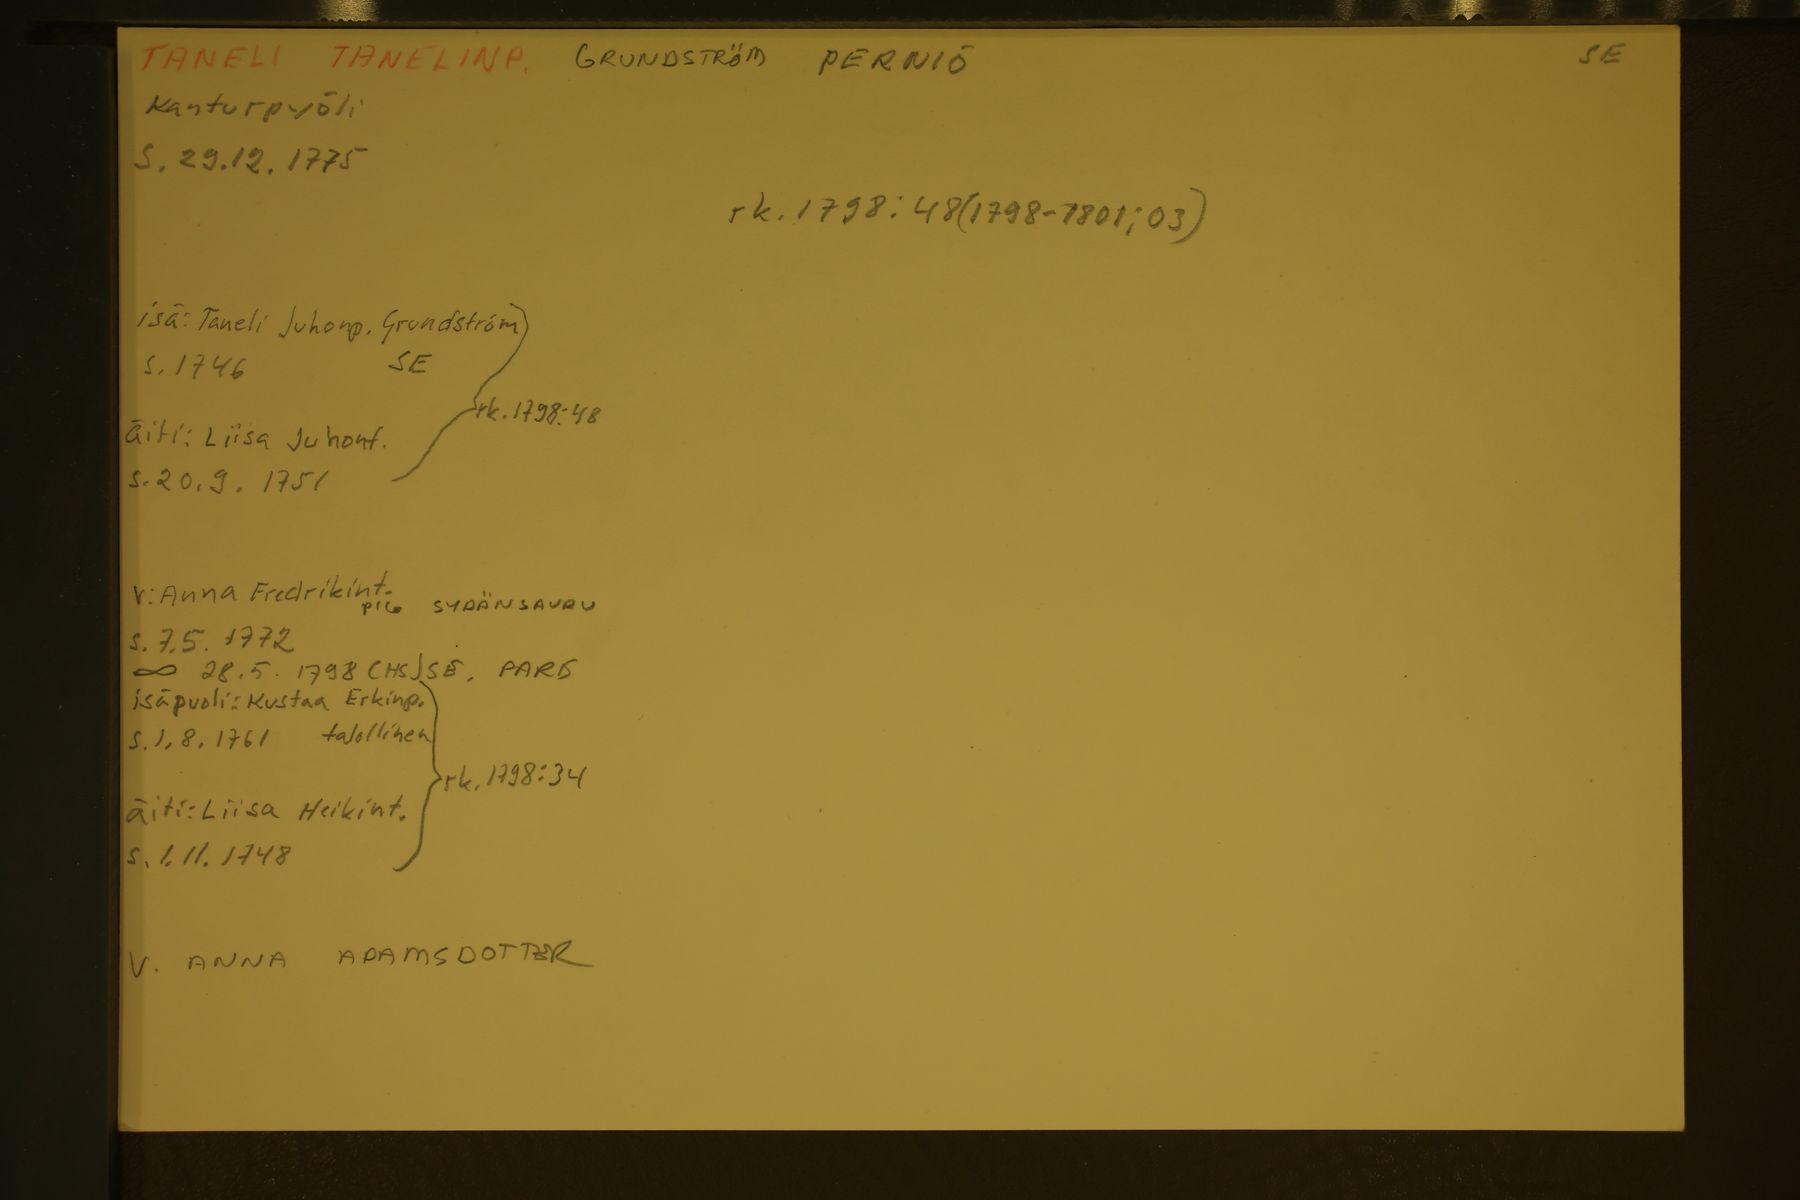 TANELI TANELINP. GRUNDSTRÖM PERNIÖ SE
Kanturpyöli
S. 29.12. 1775
rk. 1798:48(1798-1801; 03)
isä: Taneli Juhonp. Grundström
s. 1746 SE
rk. 1798:48
äiti: Liisa Juhont.
s. 20.9. 1751
v: Anna Fredrikint.
piç SYDÄNSAURU
s. 7.5. 1772
∞ 28.5. 1798 (HS) SE, PARG
isäpuoli: Kustaa Erkinp.
s. 1.8. 1761 talollinen
rk. 1798:34
äiti: Liisa Heikint.
s. 1.11. 1748
V. ANNA ADAMSDOTTER